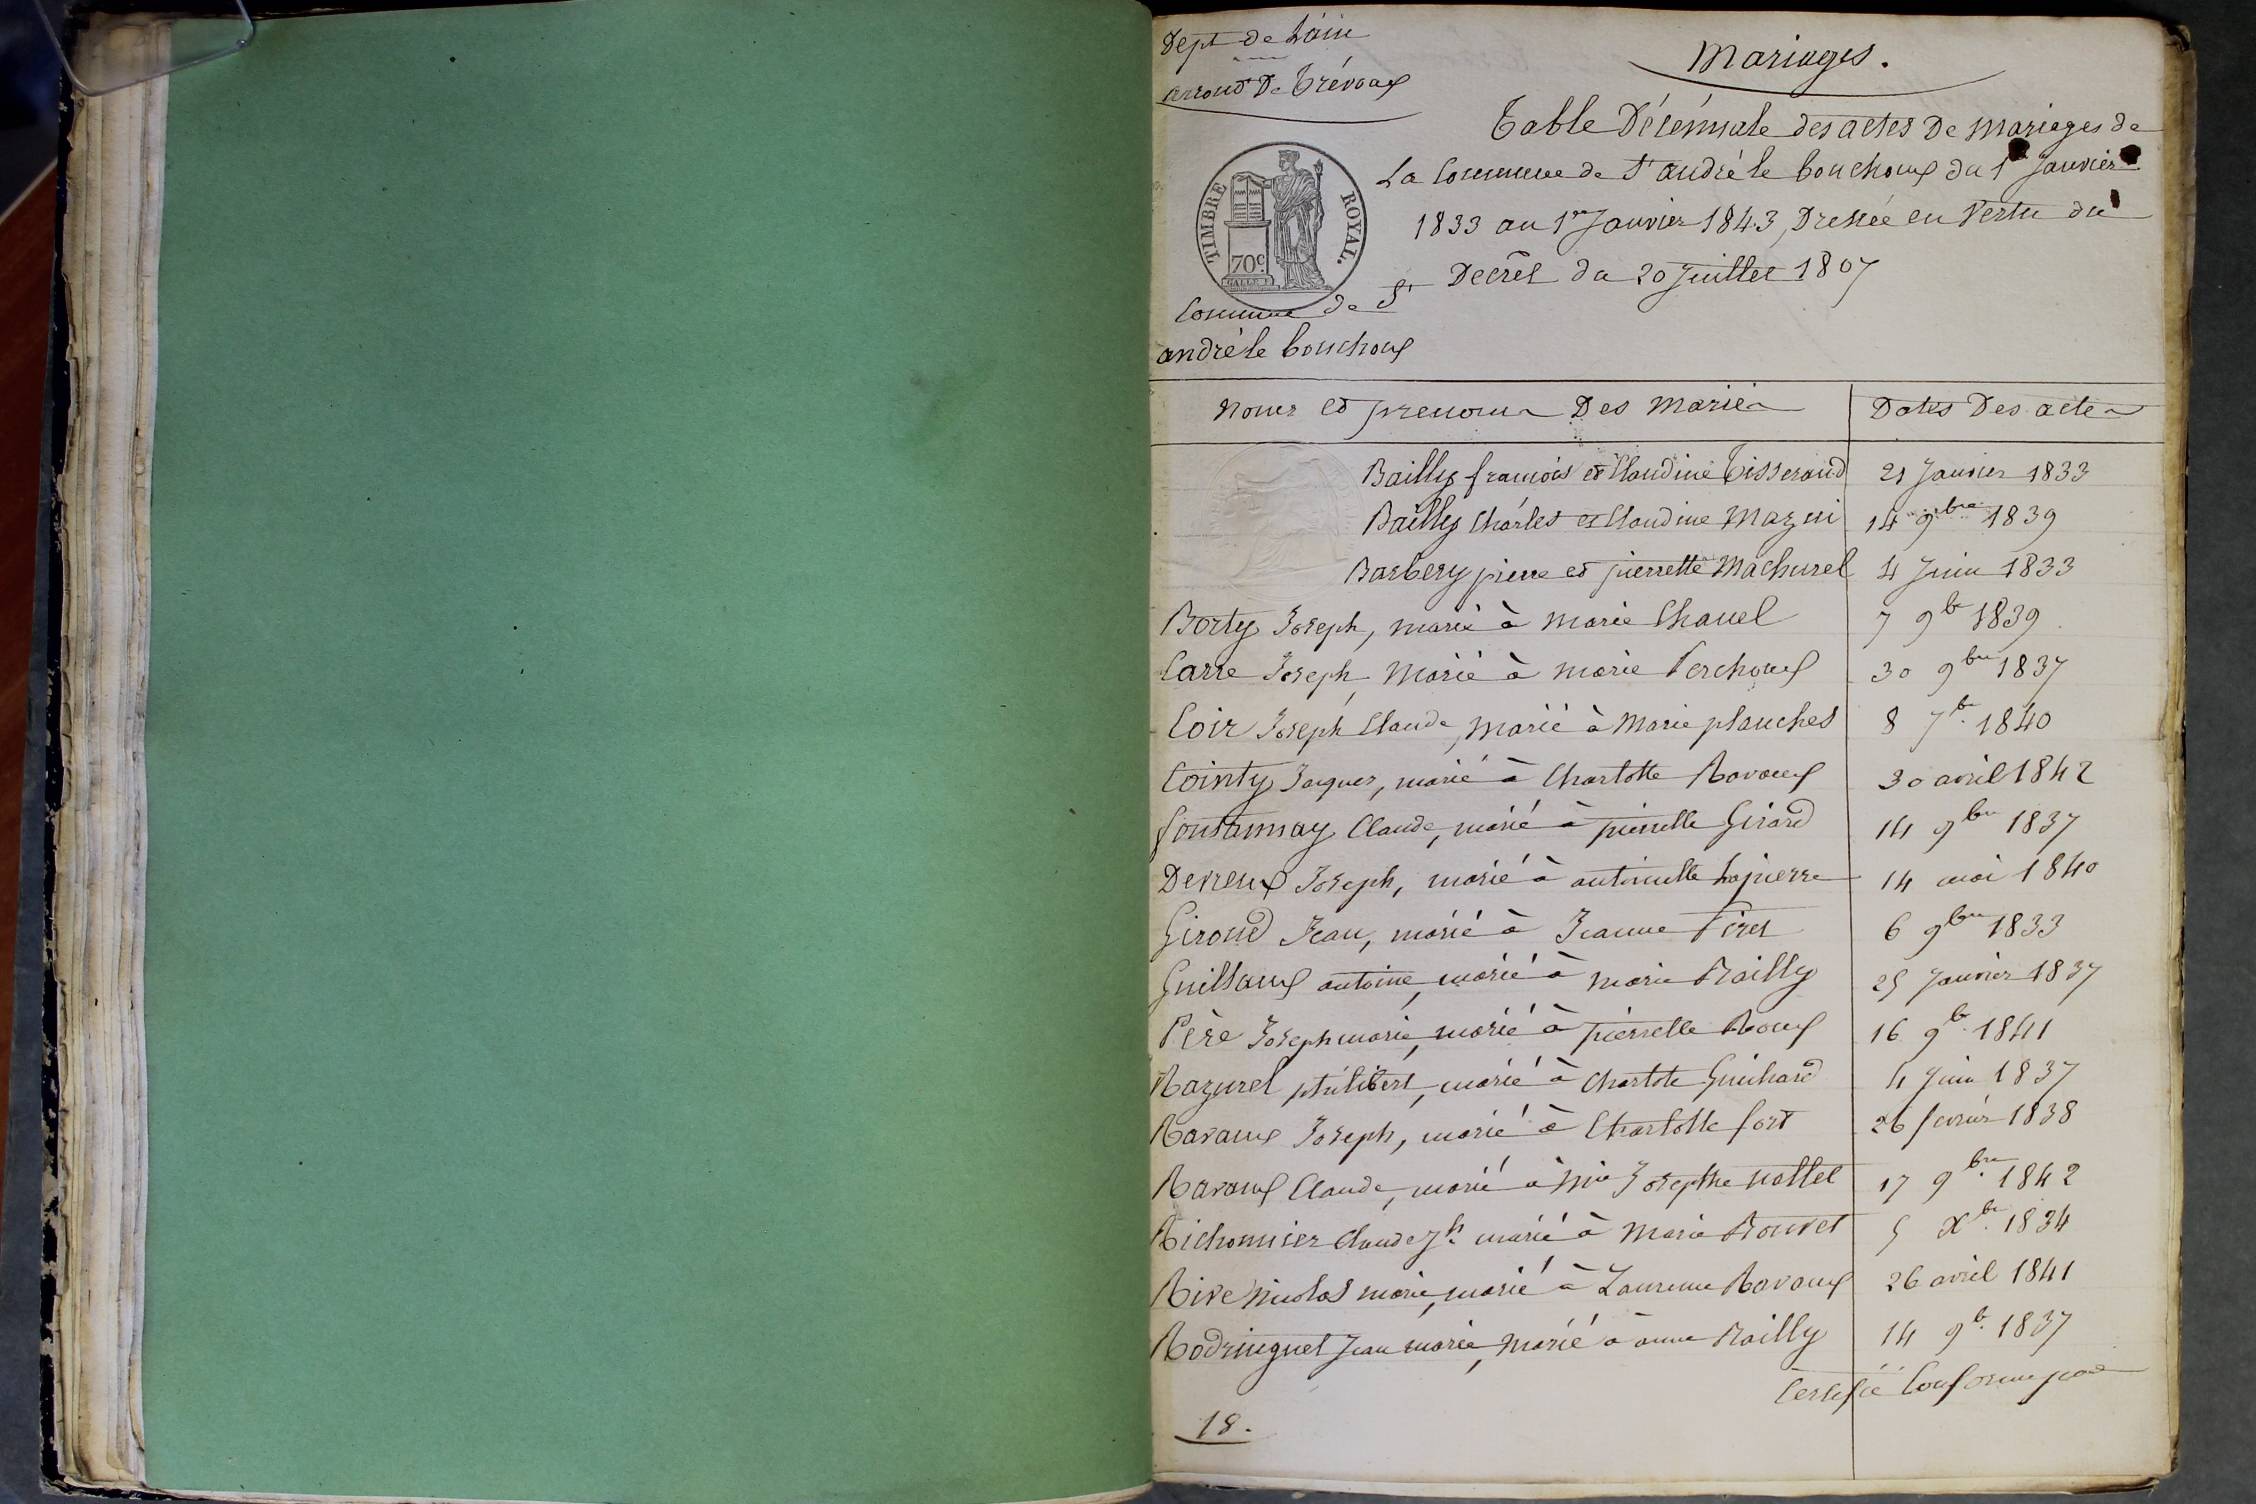 Dept de L'ain
arrond De Trévoux
Mariages.
Table Décénnale des actes De Mariages de
La Commune de St andré le bouchoux du 1er Janvier
1833 au 1er Janvier 1843, Dressée en Vertu du
Decrêt du 20 Juillet 1807
TIMBRE ROYAL.
70c.
Commune de St
andré le bouchoux
Noms et prenoms Des Mariés
Dates Des actes
Bailly francois et Claudine Tisserand 21 Janvier 1833
Bailly Charles et Claudine Mazui 14 9bre 1839
Barbery pierre et pierrette Machurel 4 Juin 1833
Borty Joseph, marié à Marie Chanel 7 9b 1839
Carre Joseph, Marié à Marie Perchoux 30 9bre 1837
Coir Joseph Claude, Marié à Marie planches 8 7b. 1840
Cointy Jaques, marié à Charlotte Ravoux 30 avril 1842
fontannay Claude, marié à pierrette Girard 14 9bre 1837
Devreux Joseph, marié à antoinette Lapierre 14 mai 1840
Giroud Jean, marié à Jeanne Piret 6 9bre 1833
Guillaux antoine, marié à Marie Bailly 25 Janvier 1837
Père Joseph marie, marié à pierrette Roux 16 9b. 1841
Razurel philibert, marié à Charlote Guichard 4 Juin 1837
Ravaux Joseph, marié à Charlotte fort 26 fevrier 1838
Ravoux Claude, marié à Mie Josephe Nallet 17 9bre 1842
Richonnier Claude Jh. marié à Marie Bouvet 5 Xbr. 1834
Rive Nicolas marie, marié à Laurence Ravoux 26 avril 1841
Rodringuet Jean marie, Marié à anne Bailly 14 9b. 1837
Certifié Conforme par
18.